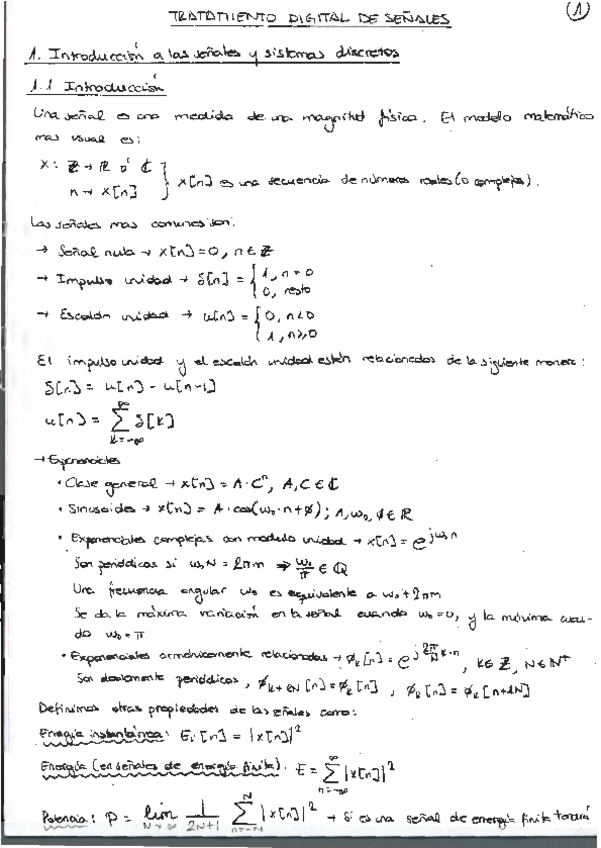 TRATAMIENTO DIGITAL DE SEÑALES
1
1. Introducción a las señales y sistemas discretos
1.1 Introducción
Una señal es una medida de una magnitud física. El modelo matemático
mas usual es:
x: ℤ → ℝ ó ℂ } x[n] es una secuencia de números reales (o complejos).
n → x[n]
Las señales mas comunes son:
→ Señal nula → x[n] = 0, n ∈ ℤ
→ Impulso unidad → δ[n] = { 1, n = 0
0, resto
→ Escalón unidad → u[n] = { 0, n<0
1, n≥0
El impulso unidad y el escalón unidad están relacionados de la siguiente manera:
δ[n] = u[n] - u[n-1]
u[n] = ∑_{k=-∞}^{∞} δ[k]
→ Exponenciales
· Clase general → x[n] = A·Cⁿ, A, C ∈ ℂ
· Sinusoides → x[n] = A·cos(ω₀·n+ϕ); A, ω₀, ϕ ∈ ℝ
· Exponenciales complejas con modulo unidad → x[n] = e^{jω₀n}
Son periódicas si ω₀N = 2πm ⇒ ω₀/π ∈ ℚ
Una frecuencia angular ω₀ es equivalente a ω₀+2πm
Se da la máxima variación en la señal cuando ω₀=0, y la mínima cuan-
do ω₀=π
· Exponenciales armónicamente relacionadas → ϕₖ[n] = e^{j(2π/N)k·n}, k∈ℤ, N∈ℕ⁺
Son doblemente periódicas, ϕ_{k+lN}[n] = ϕₖ[n], ϕₖ[n] = ϕₖ[n+lN]
Definimos otras propiedades de las señales como:
Energía instantánea: Eᵢ[n] = |x[n]|²
Energía (en señales de energía finita). E = ∑_{n=-∞}^{∞} |x[n]|²
Potencia: P = lim_{N→∞} 1/(2N+1) ∑_{n=-N}^{N} |x[n]|² → Si es una señal de energía finita tendrá